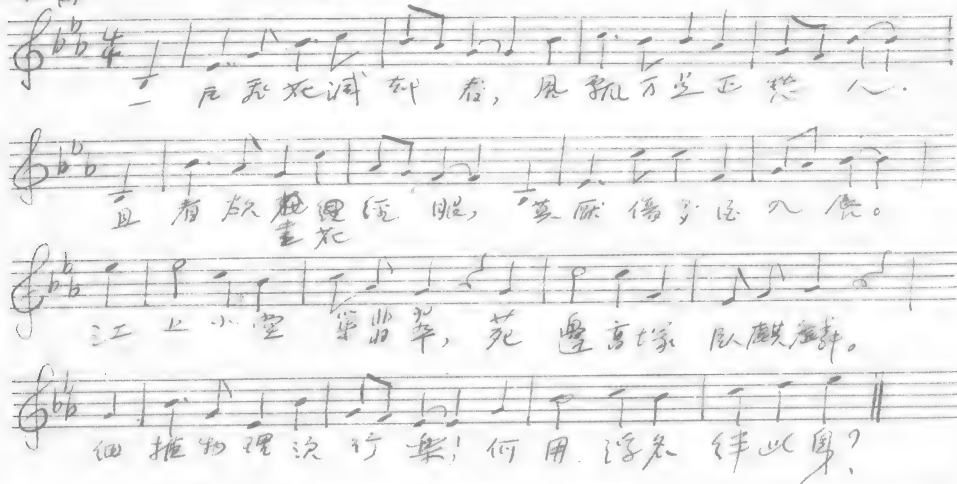 4 4
一片飛花減却春，風飄万点正愁人.
且看欲尽花經眼，莫厭傷多酒入唇。
江上小堂巢翡翠，苑邊高塚臥麒麟。
細推物理須行樂！何用浮名絆此身？